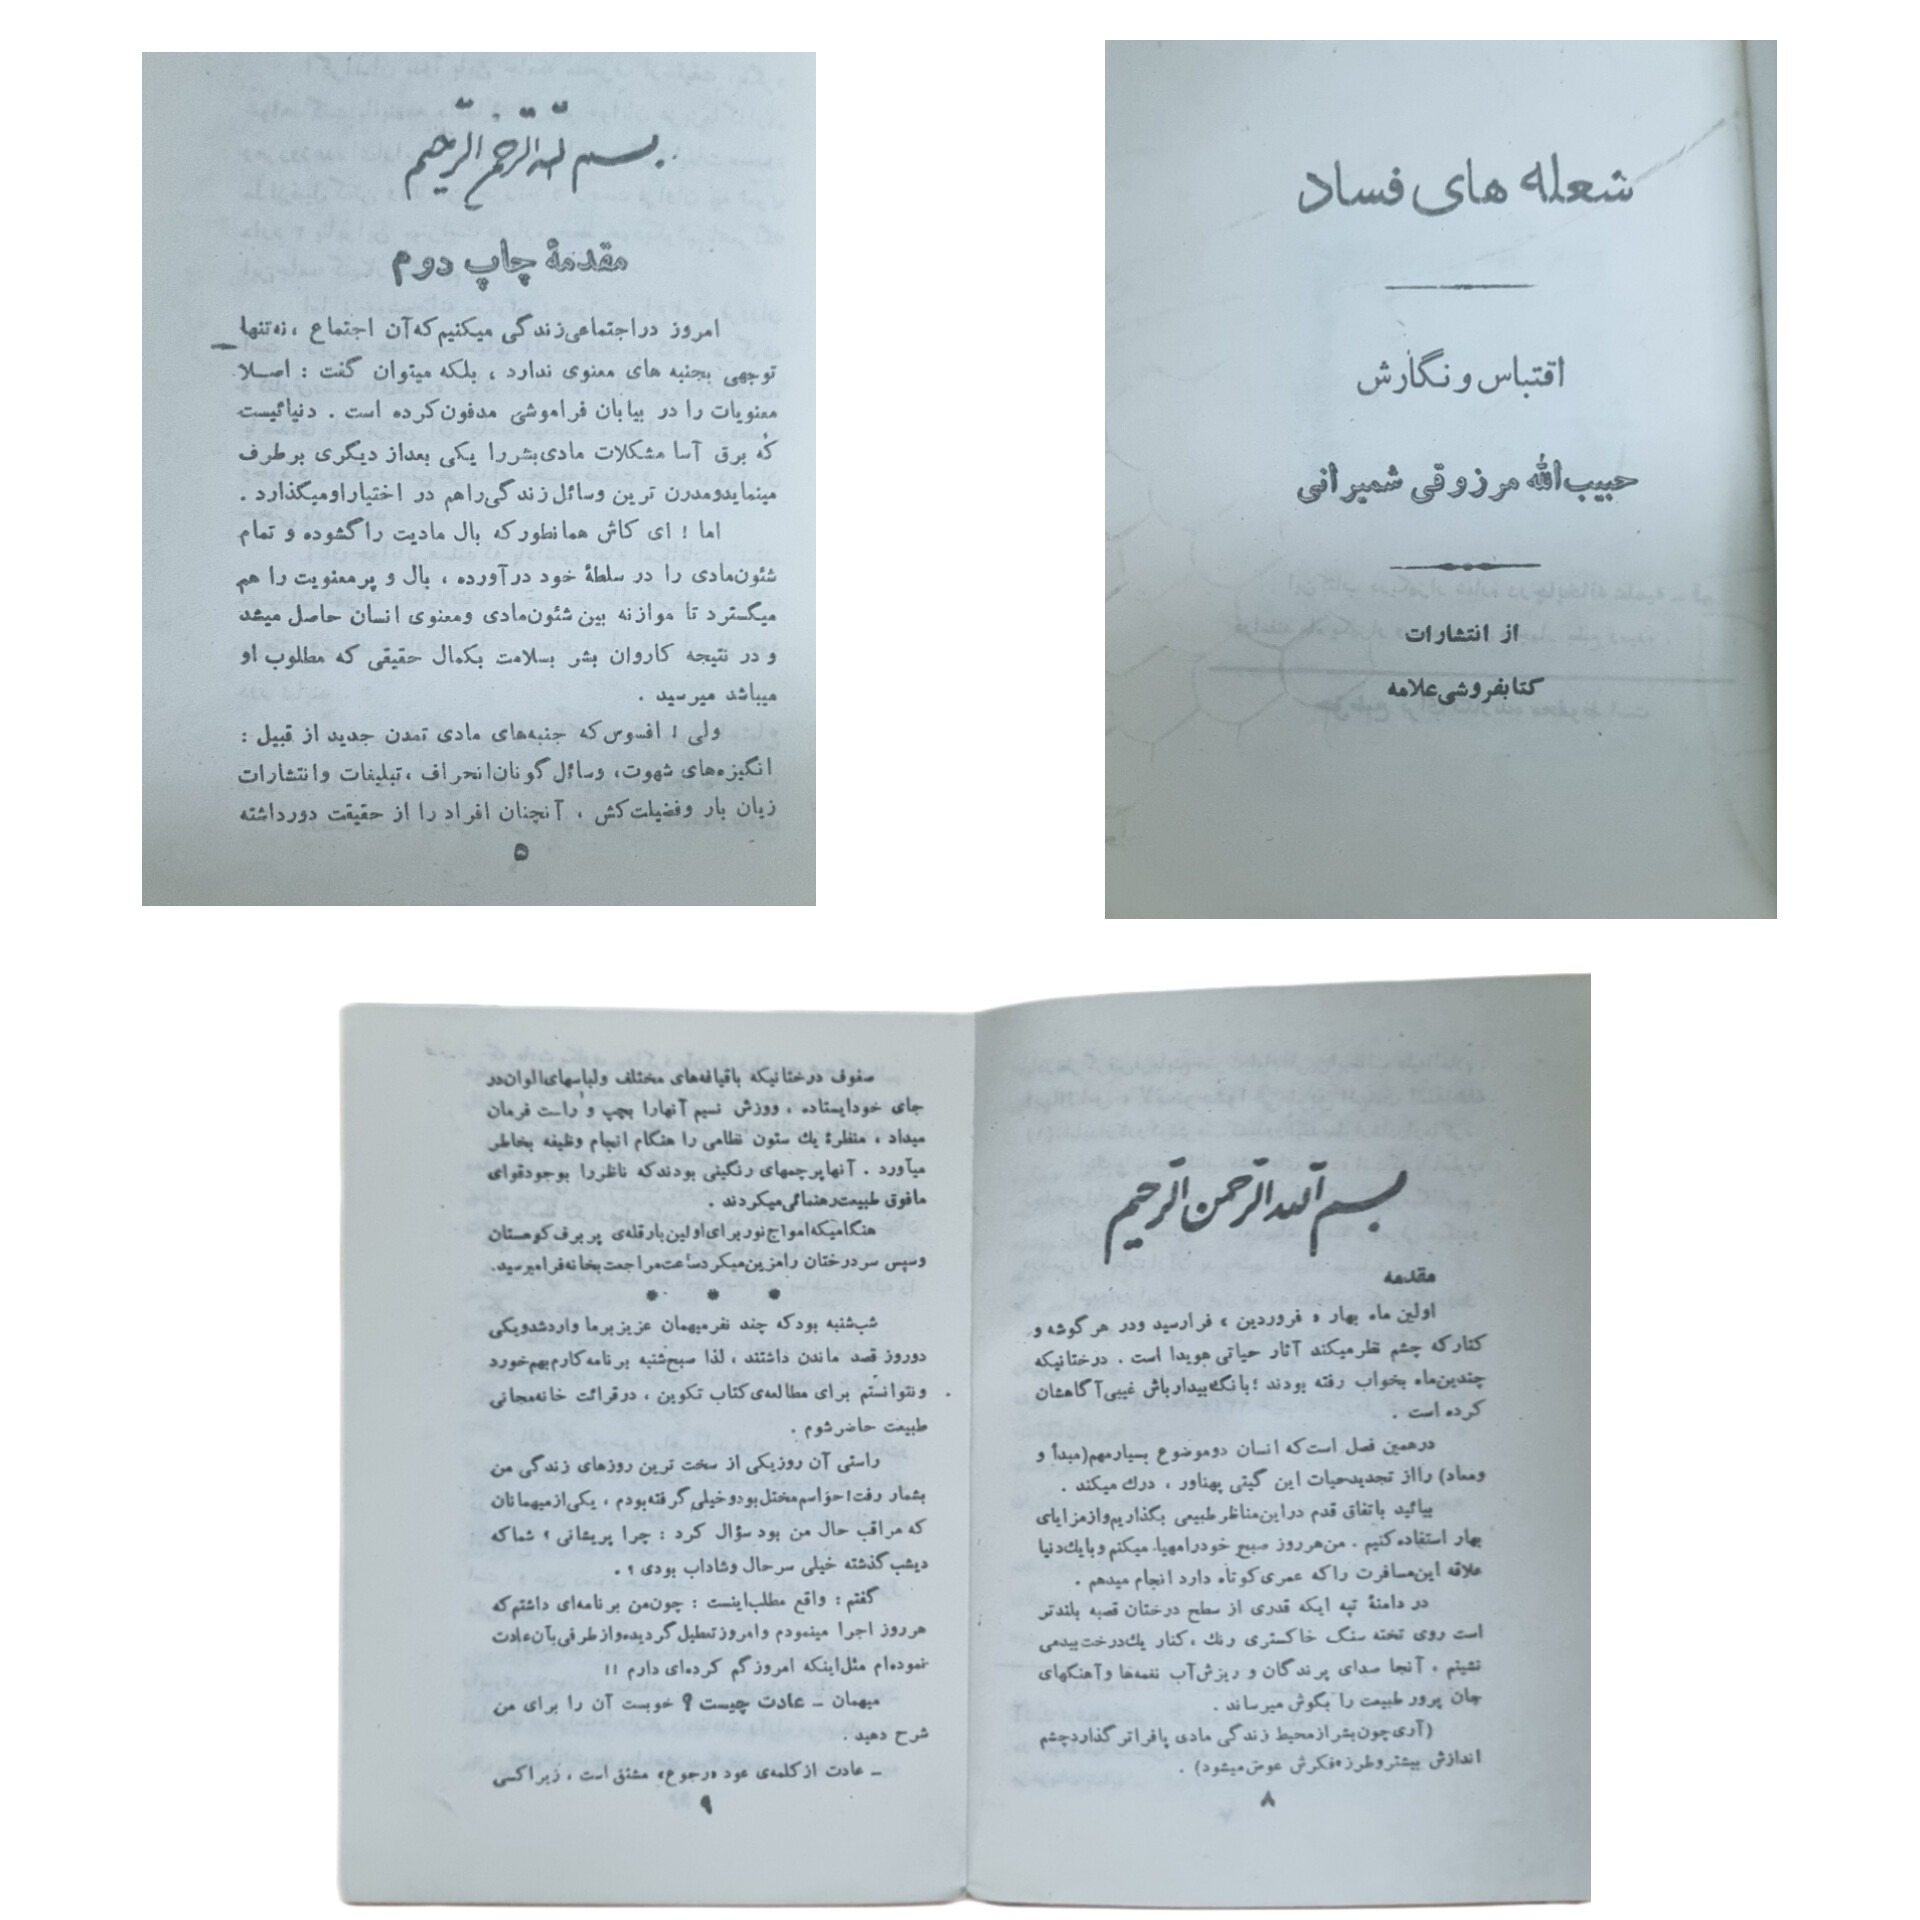 شعله های فساد
اقتباس و نگارش
حبیب‌الله مرزوقی شمیرانی
از انتشارات
کتابفروشی علامه
بسم الله الرحمن الرحیم
مقدمهٔ چاپ دوم
امروز در اجتماعی زندگی میکنیم که آن اجتماع ، نه تنها
توجهی بجنبه های معنوی ندارد ، بلکه میتوان گفت : اصلا
معنویات را در بیابان فراموشی مدفون کرده است . دنیائیست
که برق آسا مشکلات مادی بشر را یکی بعد از دیگری بر طرف
مینماید و مدرن ترین وسائل زندگی را هم در اختیار او میگذارد .
اما ! ای کاش همانطور که بال مادیت را گشوده و تمام
شئون مادی را در سلطهٔ خود در آورده ، بال و پر معنویت را هم
میگسترد تا موازنه بین شئون مادی و معنوی انسان حاصل میشد
و در نتیجه کاروان بشر بسلامت بکمال حقیقی که مطلوب او
میباشد میرسید .
ولی ! افسوس که جنبه‌های مادی تمدن جدید از قبیل :
انگیزه‌های شهوت، وسائل گوناn انحراف ، تبلیغات و انتشارات
زیان بار و فضیلت کش ، آنچنان افراد را از حقیقت دور داشته
۵
بسم الله الرحمن الرحیم
مقدمه
اولین ماه بهار « فروردین » فرا رسید ودر هر گوشه و
کنار که چشم نظر میکند آثار حیاتی هویدا است . درختانیکه
چندین ماه بخواب رفته بودند ؛ بانگ بیدار باش غیبی آگاهشان
کرده است .
درهمین فصل است که انسان دو موضوع بسیار مهم (مبدأ و
ومعاد) را از تجدید حیات این گیتی پهناور ، درك میکند .
بیائید باتفاق قدم در این مناظر طبیعی بگذاریم و از مزایای
بهار استفاده کنیم . من هر روز صبح خود را مهیا میکنم و با یك دنیا
علاقه این مسافرت را که عمری کوتاه دارد انجام میدهم .
در دامنهٔ تپه ایکه قدری از سطح درختان قصبه بلندتر
است روی تخته سنگ خاکستری رنك ، کنار یك درخت بید می
نشینم . آنجا صدای پرندگان و ریزش آب نغمه‌ها و آهنگهای
جان پرور طبیعت را بگوش میرساند .
(آری چون بشر از محیط زندگی مادی پا فراتر گذارد چشم
اندازش بیشتر و طرزه فکرش عوض میشود) .
۸
صفوف درختانیکه با قیافه‌های مختلف و لباسهای الوان در
جای خود ایستاده ، ووزش نسیم آنها را بچپ و راست فرمان
میداد ، منظرهٔ یك ستون نظامی را هنگام انجام وظیفه بخاطر
میآورد . آنها پرچمهای رنگینی بودند که ناظر را بوجود قوای
مافوق طبیعت رهنمائی میکردند .
هنگامیکه امواج نور برای اولین بار قله‌ی پر برف کوهستان
وسپس سر درختان را مزین میکرد ساعت مراجعت بخانه فرا میرسید.
* * *
شب شنبه بود که چند نفر میهمان عزیز بر ما وارد شد و یکی
دو روز قصد ماندن داشتند ، لذا صبح شنبه برنامه کارم بهم خورد
و نتوانستم برای مطالعه‌ی کتاب تکوین ، در قرائت خانه مجانی
طبیعت حاضر شوم .
راستی آن روز یکی از سخت ترین روزهای زندگی من
بشمار رفت ! حواسم مختل بود و خیلی گرفته بودم ، یکی از میهمانان
که مراقب حال من بود سؤال کرد : چرا پریشانی ؟ شما که
دیشب گذشته خیلی سر حال و شاداب بودی ؟ .
گفتم : واقع مطلب اینست : چون من برنامه‌ای داشتم که
هر روز اجرا مینمودم و امروز تعطیل گردیده و از طرفی بآن عادت
نموده‌ام مثل اینکه امروز گم کرده‌ای دارم !!
میهمان ــ عادت چیست ؟ خوبست آن را برای من
شرح دهید .
ــ عادت از کلمه‌ی عود «رجوع» مشتق است ، زیرا کسی
۹